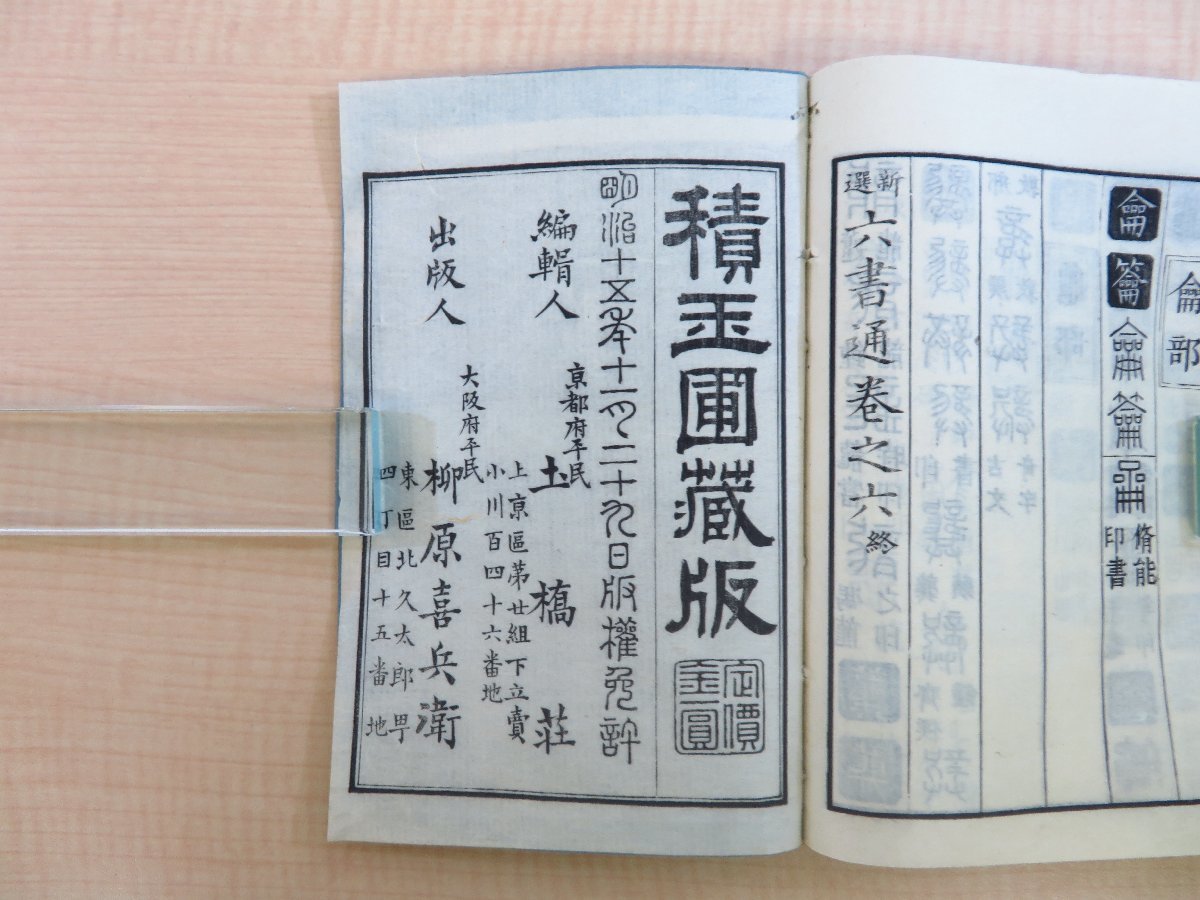 龠部
龠
籥
龠 籥 龠
脩能印書
新選六書通卷之六終
積玉圃藏版
定價金圓
明治十五年十一月二十九日版權免許
編輯人
京都府平民
土橋荘
上京區第廿組下立賣
小川百四十六番地
出版人
大阪府平民
柳原喜兵衛
東區北久太郎甼
四丁目十五番地